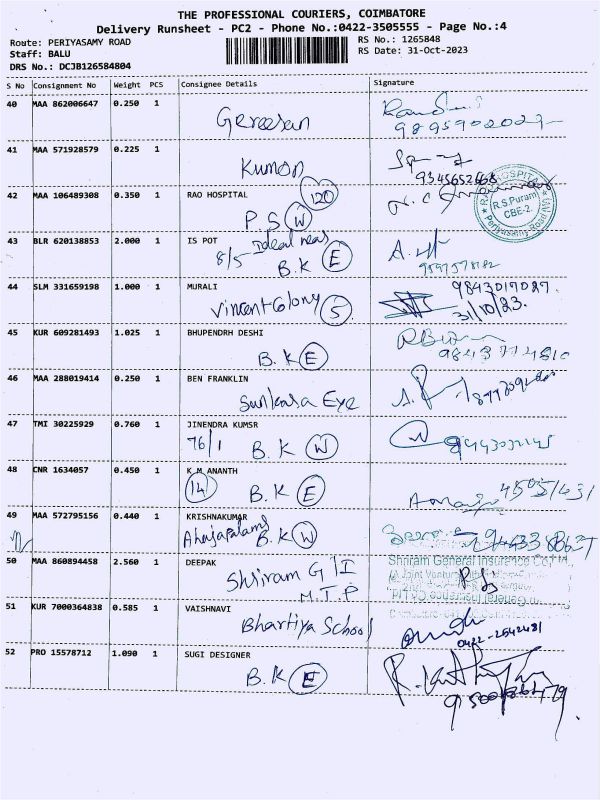 THE PROFESSIONAL COURIERS, COIMBATORE
Delivery Runsheet - PC2 - Phone No.:0422-3505555 - Page No.:4
Route: PERIYASAMY ROAD
RS No.: 1265848
Staff: BALU
RS Date: 31-Oct-2023
DRS No.: DCJB126584804
S No Consignment No Weight PCS Consignee Details Signature
40 MAA 862006647 0.250 1
Gereesan
9895902022
41 MAA 571928579 0.225 1
Kumon
9345652668
42 MAA 106489308 0.350 1 RAO HOSPITAL
120
P S W
R.S.Puram
CBE-2.
43 BLR 620138853 2.000 1 IS POT
Ideal near
8/5 B.K E
44 SLM 331659198 1.000 1 MURALI
9843017027
Vincent Colony 5
31/10/23.
45 KUR 609281493 1.025 1 BHUPENDRH DESHI
B.K E
46 MAA 288019414 0.250 1 BEN FRANKLIN
Sunkara Eye
47 TMI 30225929 0.760 1 JINENDRA KUMSR
76/1 B.K W
48 CNR 1634057 0.450 1 K M ANANTH
14 B.K E
49 MAA 572795156 0.440 1 KRISHNAKUMAR
B.K W
50 MAA 860894458 2.560 1 DEEPAK
Shriram General Insurance Co
Shriram G I
M.T.P
51 KUR 7000364838 0.585 1 VAISHNAVI
Bhartiya School
0422-2542481
52 PRO 15578712 1.090 1 SUGI DESIGNER
B.K E